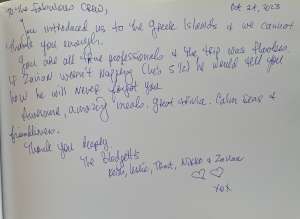 To the Fabulous Crew, Oct 24, 2023
You introduced us to the Greek Islands & we cannot
thank you enough.
You are all true professionals & the trip was flawless.
If Zavian weren't napping (he's 5½) he would tell you
how he will never forget you
Awesome, amazing meals. great advice. Calm seas &
friendliness.
Thank you deeply
The Blodgetts
Leslie, Trent, & Zavian
xox